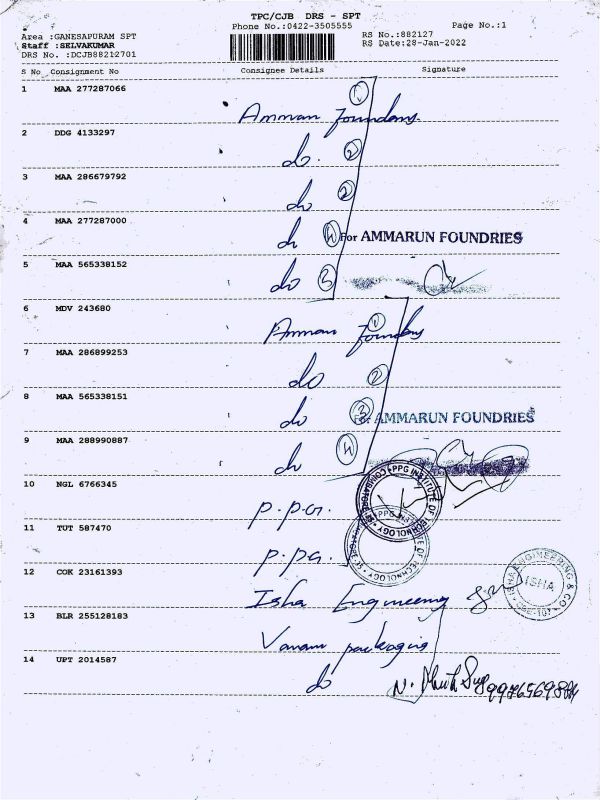 TPC/CJB DRS - SPT
Phone No.:0422-3505555
Page No.:1
Area :GANESAPURAM SPT
RS No.:882127
Staff :SELVAKUMAR
RS Date:28-Jan-2022
DRS No. :DCJB88212701
S No Consignment No Consignee Details Signature
1 MAA 277287066 Amman Foundary ①
2 DDG 4133297 do. ②
3 MAA 286679792 do ②
4 MAA 277287000 do ④ For AMMARUN FOUNDRIES
5 MAA 565338152 do ③
6 MDV 243680 Amman Foundry ①
7 MAA 286899253 do ②
8 MAA 565338151 do ③ For AMMARUN FOUNDRIES
9 MAA 288990887 do ④
10 NGL 6766345 P.PG. PPG INSTITUTE OF TECHNOLOGY
11 TUT 587470 P.PG. OF TECHNOLOGY
12 COK 23161393 Isha Engineering ISHA ENGINEERING & CO. ISHA CBE-107
13 BLR 255128183 Vanam packaging
14 UPT 2014587 do